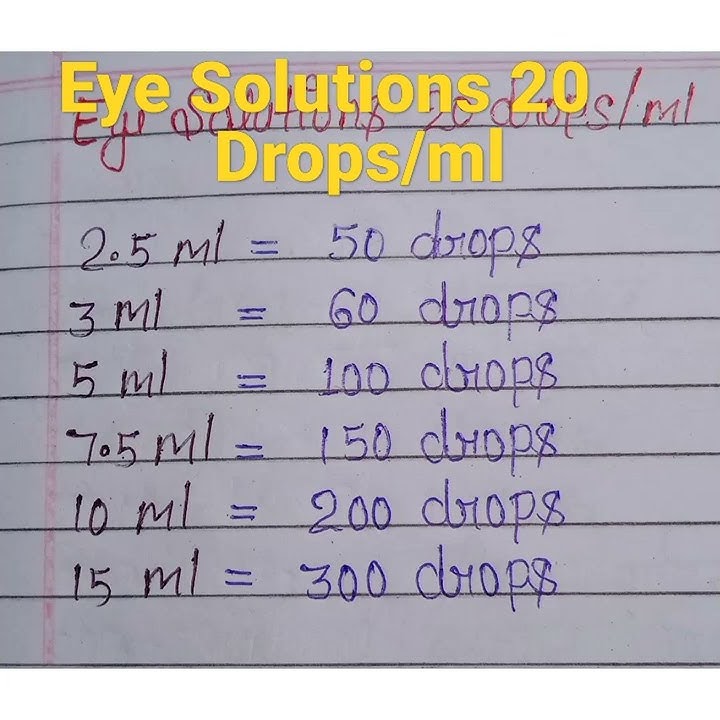 Eye Solutions 20
Drops/ml
Eye Solutions 20 drops/ml
2.5 ml = 50 drops
3 ml = 60 drops
5 ml = 100 drops
7.5 ml = 150 drops
10 ml = 200 drops
15 ml = 300 drops